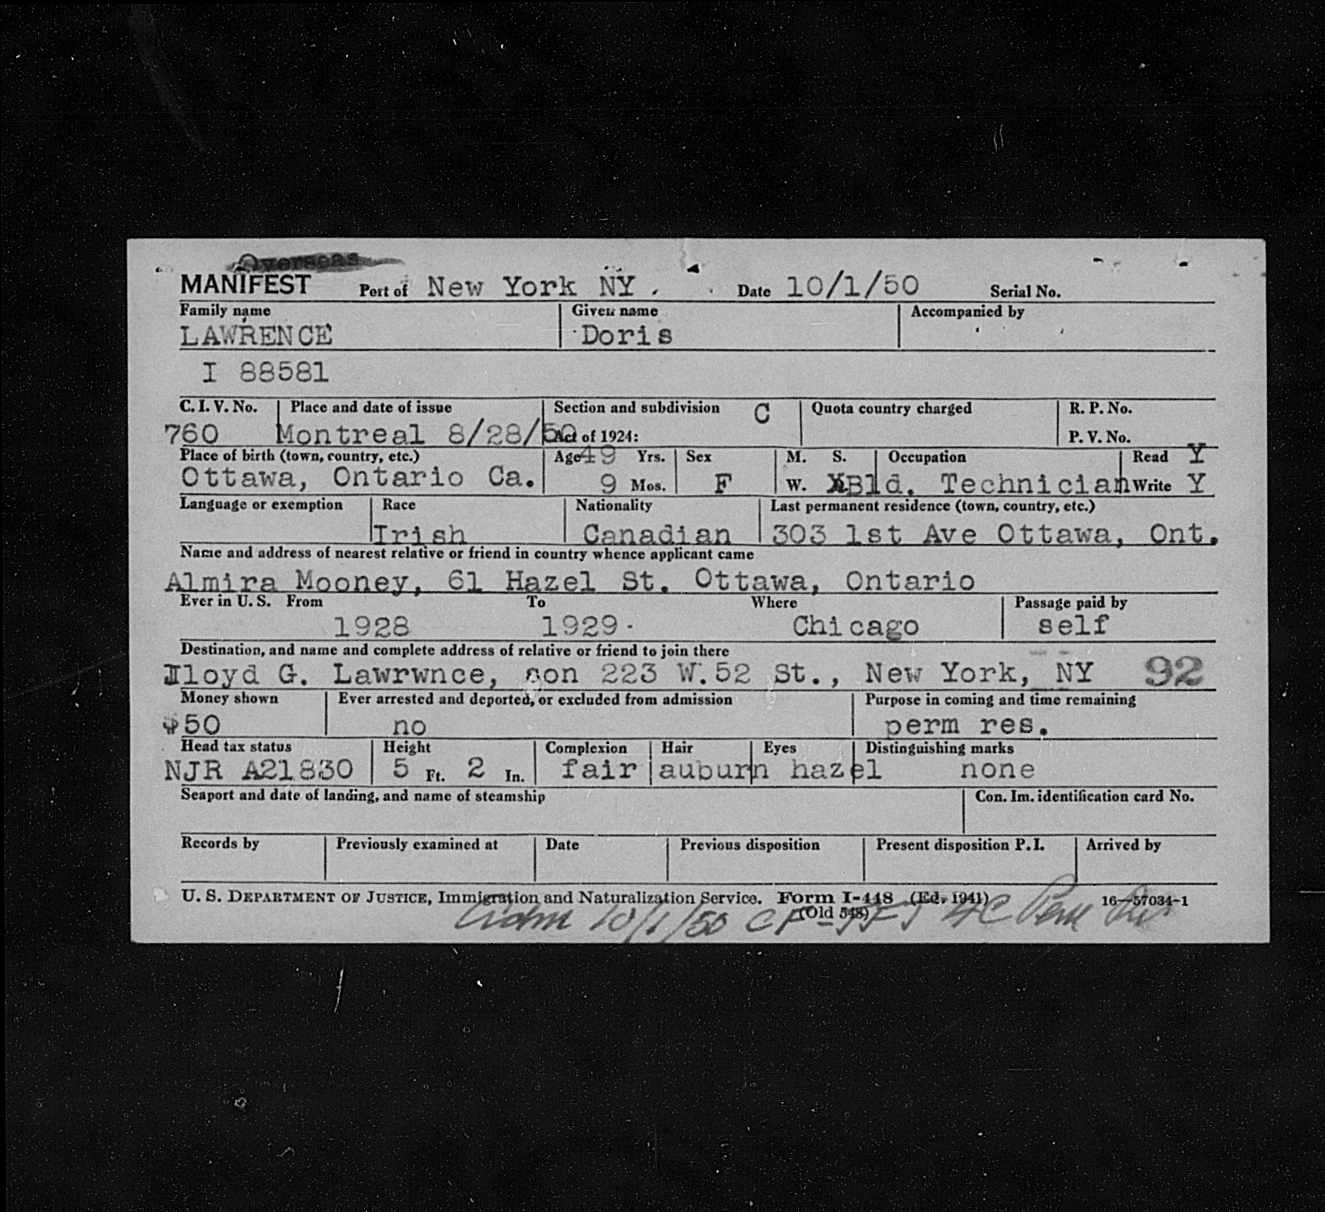 Overseas
MANIFEST Port of New York NY. Date 10/1/50 Serial No.
Family name Given name Accompanied by
LAWRENCE Doris
I 88581
C. I. V. No. Place and date of issue Section and subdivision C Quota country charged R. P. No.
760 Montreal 8/28/50 Act of 1924: P. V. No.
Place of birth (town, country, etc.) Age 49 Yrs. Sex M. S. Occupation Read Y
Ottawa, Ontario Ca. 9 Mos. F W. X Bld. Technician Write Y
Language or exemption Race Nationality Last permanent residence (town, country, etc.)
Irish Canadian 303 1st Ave Ottawa, Ont.
Name and address of nearest relative or friend in country whence applicant came
Almira Mooney, 61 Hazel St. Ottawa, Ontario
Ever in U. S. From To Where Passage paid by
1928 1929 Chicago self
Destination, and name and complete address of relative or friend to join there
Lloyd G. Lawrwnce, son 223 W.52 St., New York, NY 92
Money shown Ever arrested and deported, or excluded from admission Purpose in coming and time remaining
$50 no perm res.
Head tax status Height Complexion Hair Eyes Distinguishing marks
NJR A21830 5 Ft. 2 In. fair auburn hazel none
Seaport and date of landing, and name of steamship Con. Im. identification card No.
Records by Previously examined at Date Previous disposition Present disposition P. I. Arrived by
U. S. DEPARTMENT OF JUSTICE, Immigration and Naturalization Service. Form I-448 (Ed. 1941) 16—57034-1
(Old 548)
Adm 10/1/50